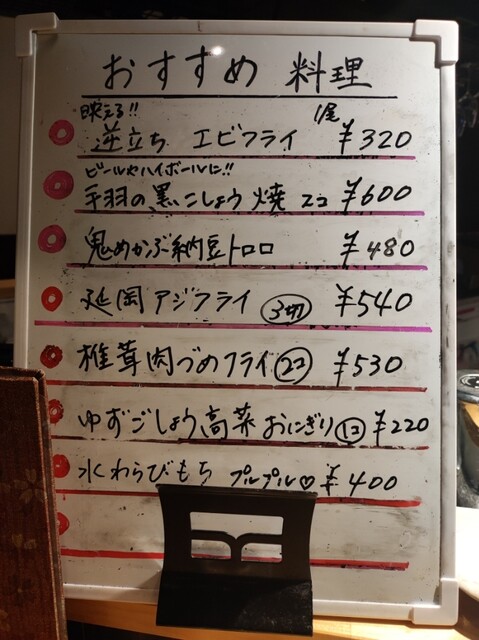 おすすめ 料理
映える!!
逆立ち エビフライ 1尾 ¥320
ビールやハイボールに!!
手羽の黒こしょう焼 2コ ¥600
鬼めかぶ納豆トロロ ¥480
延岡アジフライ 3切 ¥540
椎茸肉づめフライ 2コ ¥530
ゆずごしょう高菜おにぎり 1コ ¥220
水わらびもち プルプル♡ ¥400